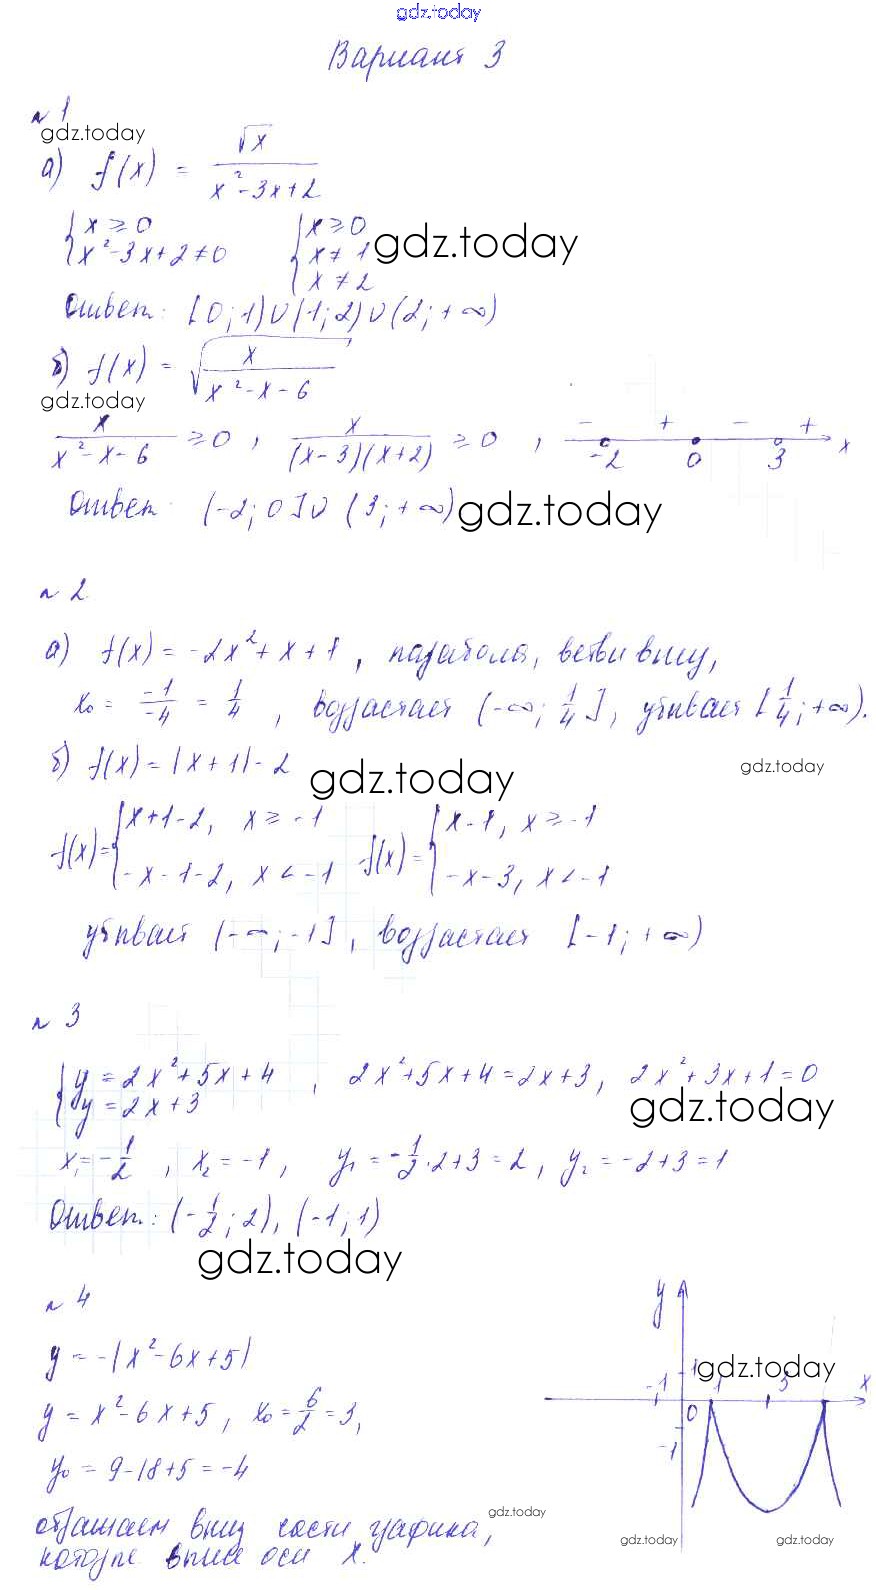 gdz.today
Вариант 3
№ 1
gdz.today
а) f(x) = √x / (x² - 3x + 2)
{ x ≥ 0 { x ≥ 0 gdz.today
x² - 3x + 2 ≠ 0 x ≠ 1
x ≠ 2
Ответ: [0; 1) ∪ (1; 2) ∪ (2; +∞)
б) f(x) = √(x / (x² - x - 6))
gdz.today
x / (x² - x - 6) ≥ 0, x / ((x - 3)(x + 2)) ≥ 0, - + - + -2 0 3 x
Ответ: (-2; 0] ∪ (3; +∞) gdz.today
№ 2
а) f(x) = -2x² + x + 1, парабола, ветви вниз,
x₀ = -1 / -4 = 1/4, возрастает (-∞; 1/4], убывает [1/4; +∞).
б) f(x) = |x + 1| - 2 gdz.today gdz.today
f(x) = { x + 1 - 2, x ≥ -1 f(x) = { x - 1, x ≥ -1
-x - 1 - 2, x < -1 -x - 3, x < -1
убывает (-∞; -1], возрастает [-1; +∞)
№ 3
{ y = 2x² + 5x + 4, 2x² + 5x + 4 = 2x + 3, 2x² + 3x + 1 = 0
y = 2x + 3 gdz.today
x₁ = -1/2, x₂ = -1, y₁ = -1/2 · 2 + 3 = 2, y₂ = -2 + 3 = 1
Ответ: (-1/2; 2), (-1; 1)
gdz.today
№ 4
y = -|x² - 6x + 5|
y = x² - 6x + 5, x₀ = 6/2 = 3,
y₀ = 9 - 18 + 5 = -4
отражаем вниз части графика,
которые выше оси x.
y
1 gdz.today
-1 1 3 x
0
-1
gdz.today
gdz.today gdz.today